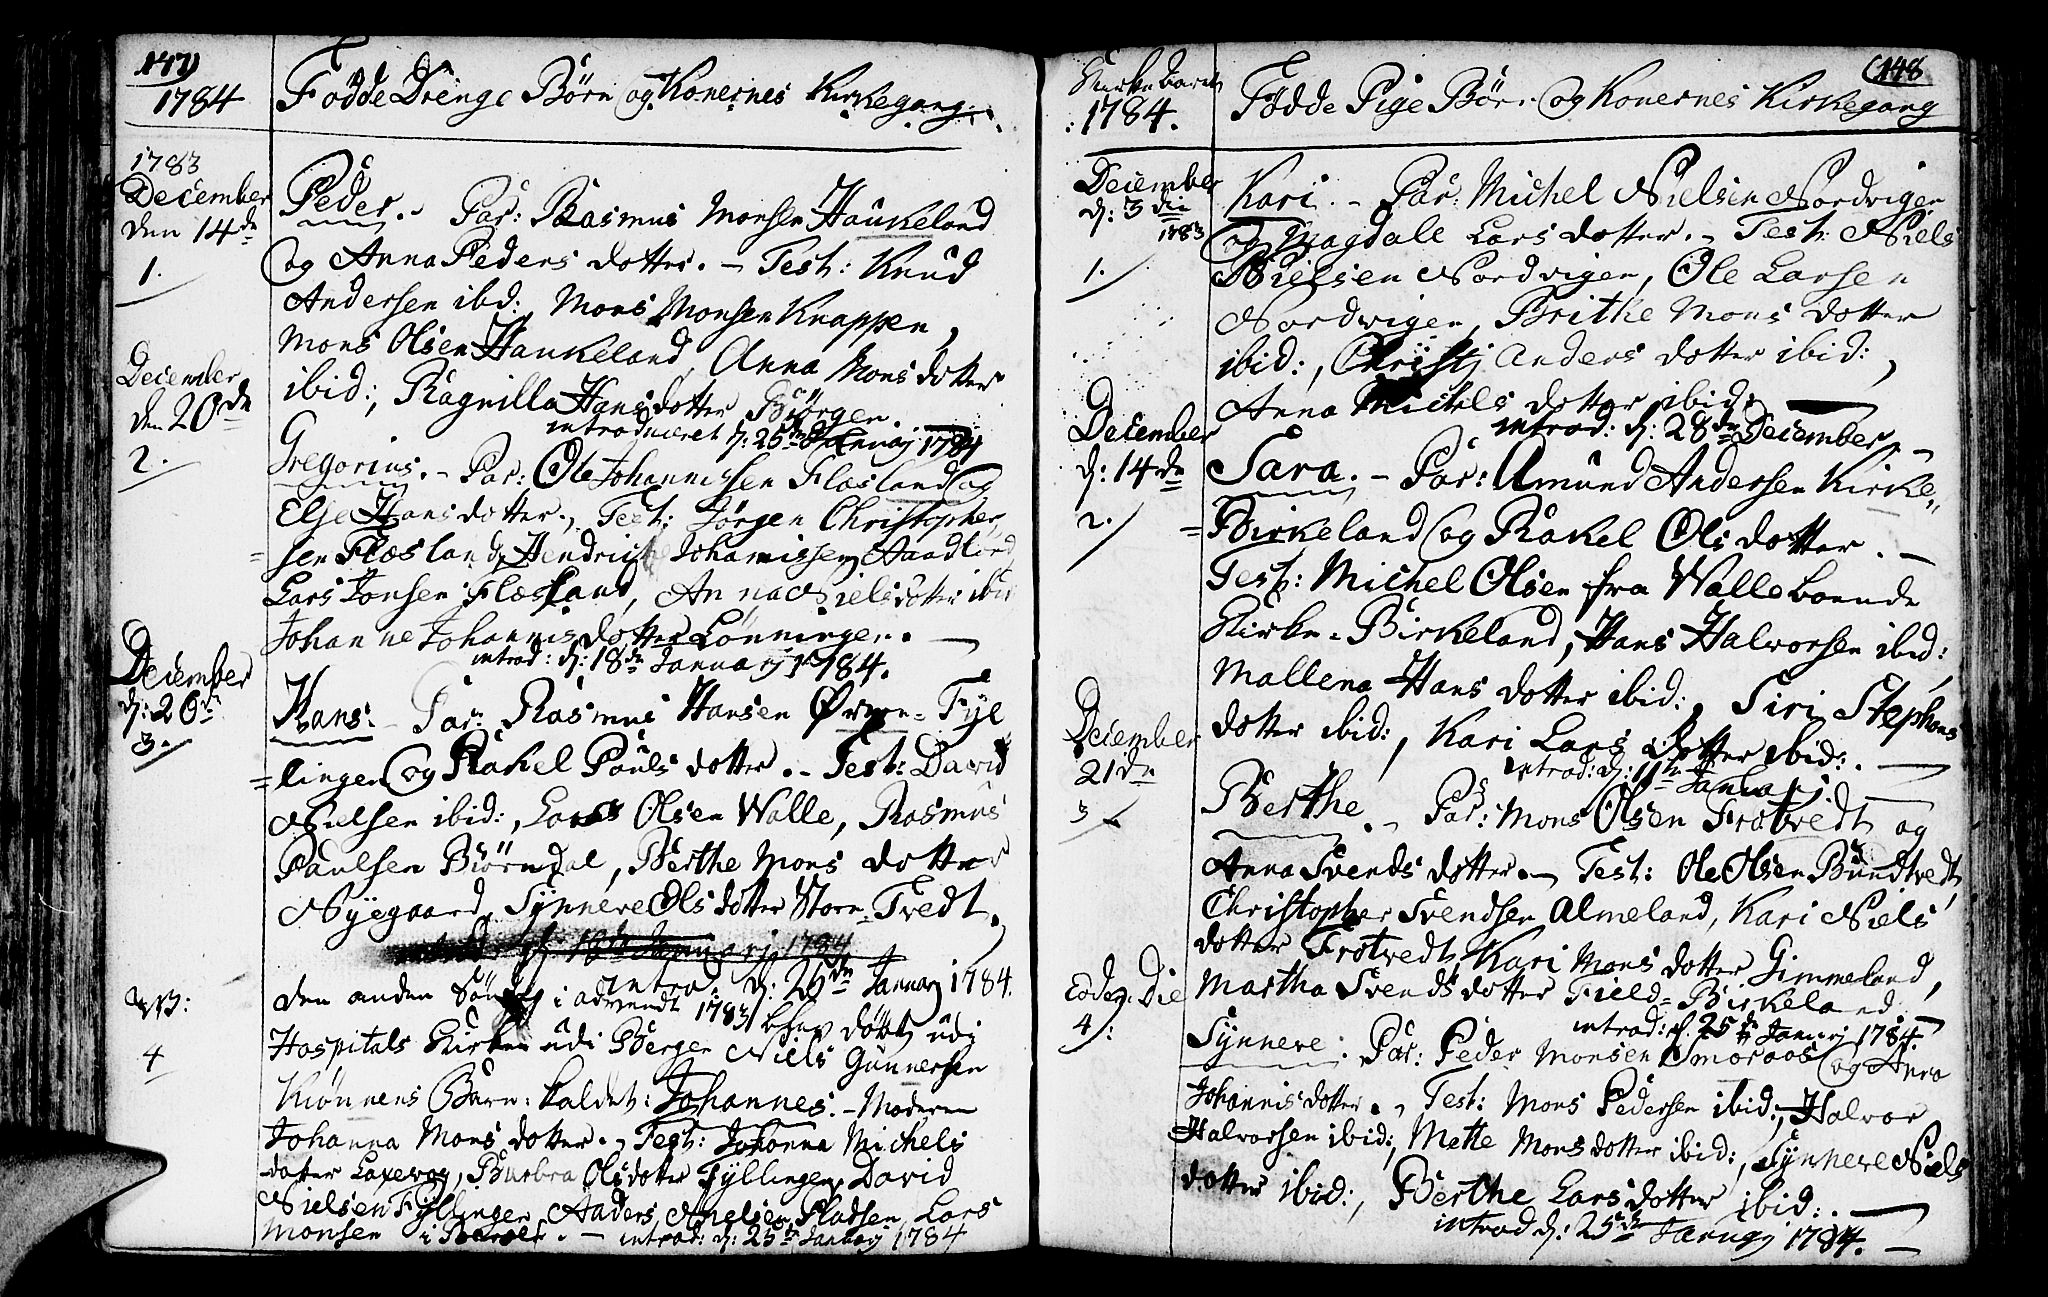 147)
1784
Födde Drenge Börn og Konernes Kirkegang.
1783
December
den 14de
1.
Peder. - Par: Rasmus Monsen Haukeland
og Anna Peders dotter. - Test: Knud
Andersen ibd: Mons Monsen Knappen,
Mons Olsen Haukeland, Anna Mons dotter
ibid:, Ragnilla Hans dotter Biörgen.
introduceret d: 25de Januarj 1784
December
den 20de
2.
Gregorius. - Par: Ole Johannissen Flæsland og
Else Hans dotter. - Test: Jörgen Christopher
= sen Flæsland, Hendrich Johannissen Aandland
Lars Jonsen Flæsland, Anna Niels dotter ibid
Johanne Johannis dotter Lönningen. -
introd: d: 18de Januarj 1784.
December
d: 26de
3.
Hans. - Par: Rasmus Hansen Øvren= Fyl
= lingen og Rakel Pouls dotter. - Test: David
Nielsen ibid:, Lars Olsen Walle, Rasmus
Paulsen Biörndal, Berthe Mons dotter
Nyegaard, Synneve Ols dotter Store Tvedt.
introd: d: 18de Januarj 1784
introd: d: 25de Januarj 1784.
NB:
4
den anden Söndag i advendt 1783 blev döbt udi
Hospitals Kirken udi Bergen Niels Gunnersen
Kiönnens Barn: kaldet: Johannes. - Moderen
Johanna Mons dotter. - Test: Johanna Michels
dotter Laxevog, Barbra Olsdotter Fyllingen, David
Nielsen Fyllingen, Anders Nielsen Pladsen, Lars
Monsen i - introd: d: 25de Januarj 1784
(148
1784.
Födde Pige Börn og Konernes Kirkegang
December
d: 3die
1783
1.
Kari. - Par: Michel Nielsen Nordvigen
og Magdale Lars dotter. - Test: Niels
Nielsen Nordvigen, Ole Larsen
Nordvigen, Brithe Mons dotter
ibid:, Christj Anders dotter ibid:,
Anna Michels dotter ibid:
introd: d: 28de December. -
December
d: 14de
2.
Sara. - Par: Amund Andersen Kirke
= Birkeland og Rakel Ols dotter. -
Test: Michel Olsen fra Walle boende
Kirke-Birkeland, Hans Halvorsen ibid:
Mallena Hans dotter ibid:, Siri Stephans
dotter ibid:, Kari Lars dotter ibid:. -
introd: d: 11te Januarj.
December
21de
3
Berthe. - Par: Mons Olsen Frotvedt og
Anna Svends dotter. - Test: Ole Olsen Bundtvedt,
Christopher Svendsen Almeland, Kari Niels
dotter Frotvedt, Kari Mons dotter Gimmeland,
Martha Svends dotter Field= Birkeland
introd: d: 25de Januarj 1784.
Eodem Die
4:
Synneve. Par: Peder Monsen Smoraas og Anna
Johannis dotter. - Test: Mons Pedersen ibid:, Halvor
Halvorsen ibid:, Mette Monsdotter ibid:, Synneve Niels
dotter ibid:, Berthe Lars dotter ibid:. -
introd d: 25de Januarj 1784. -